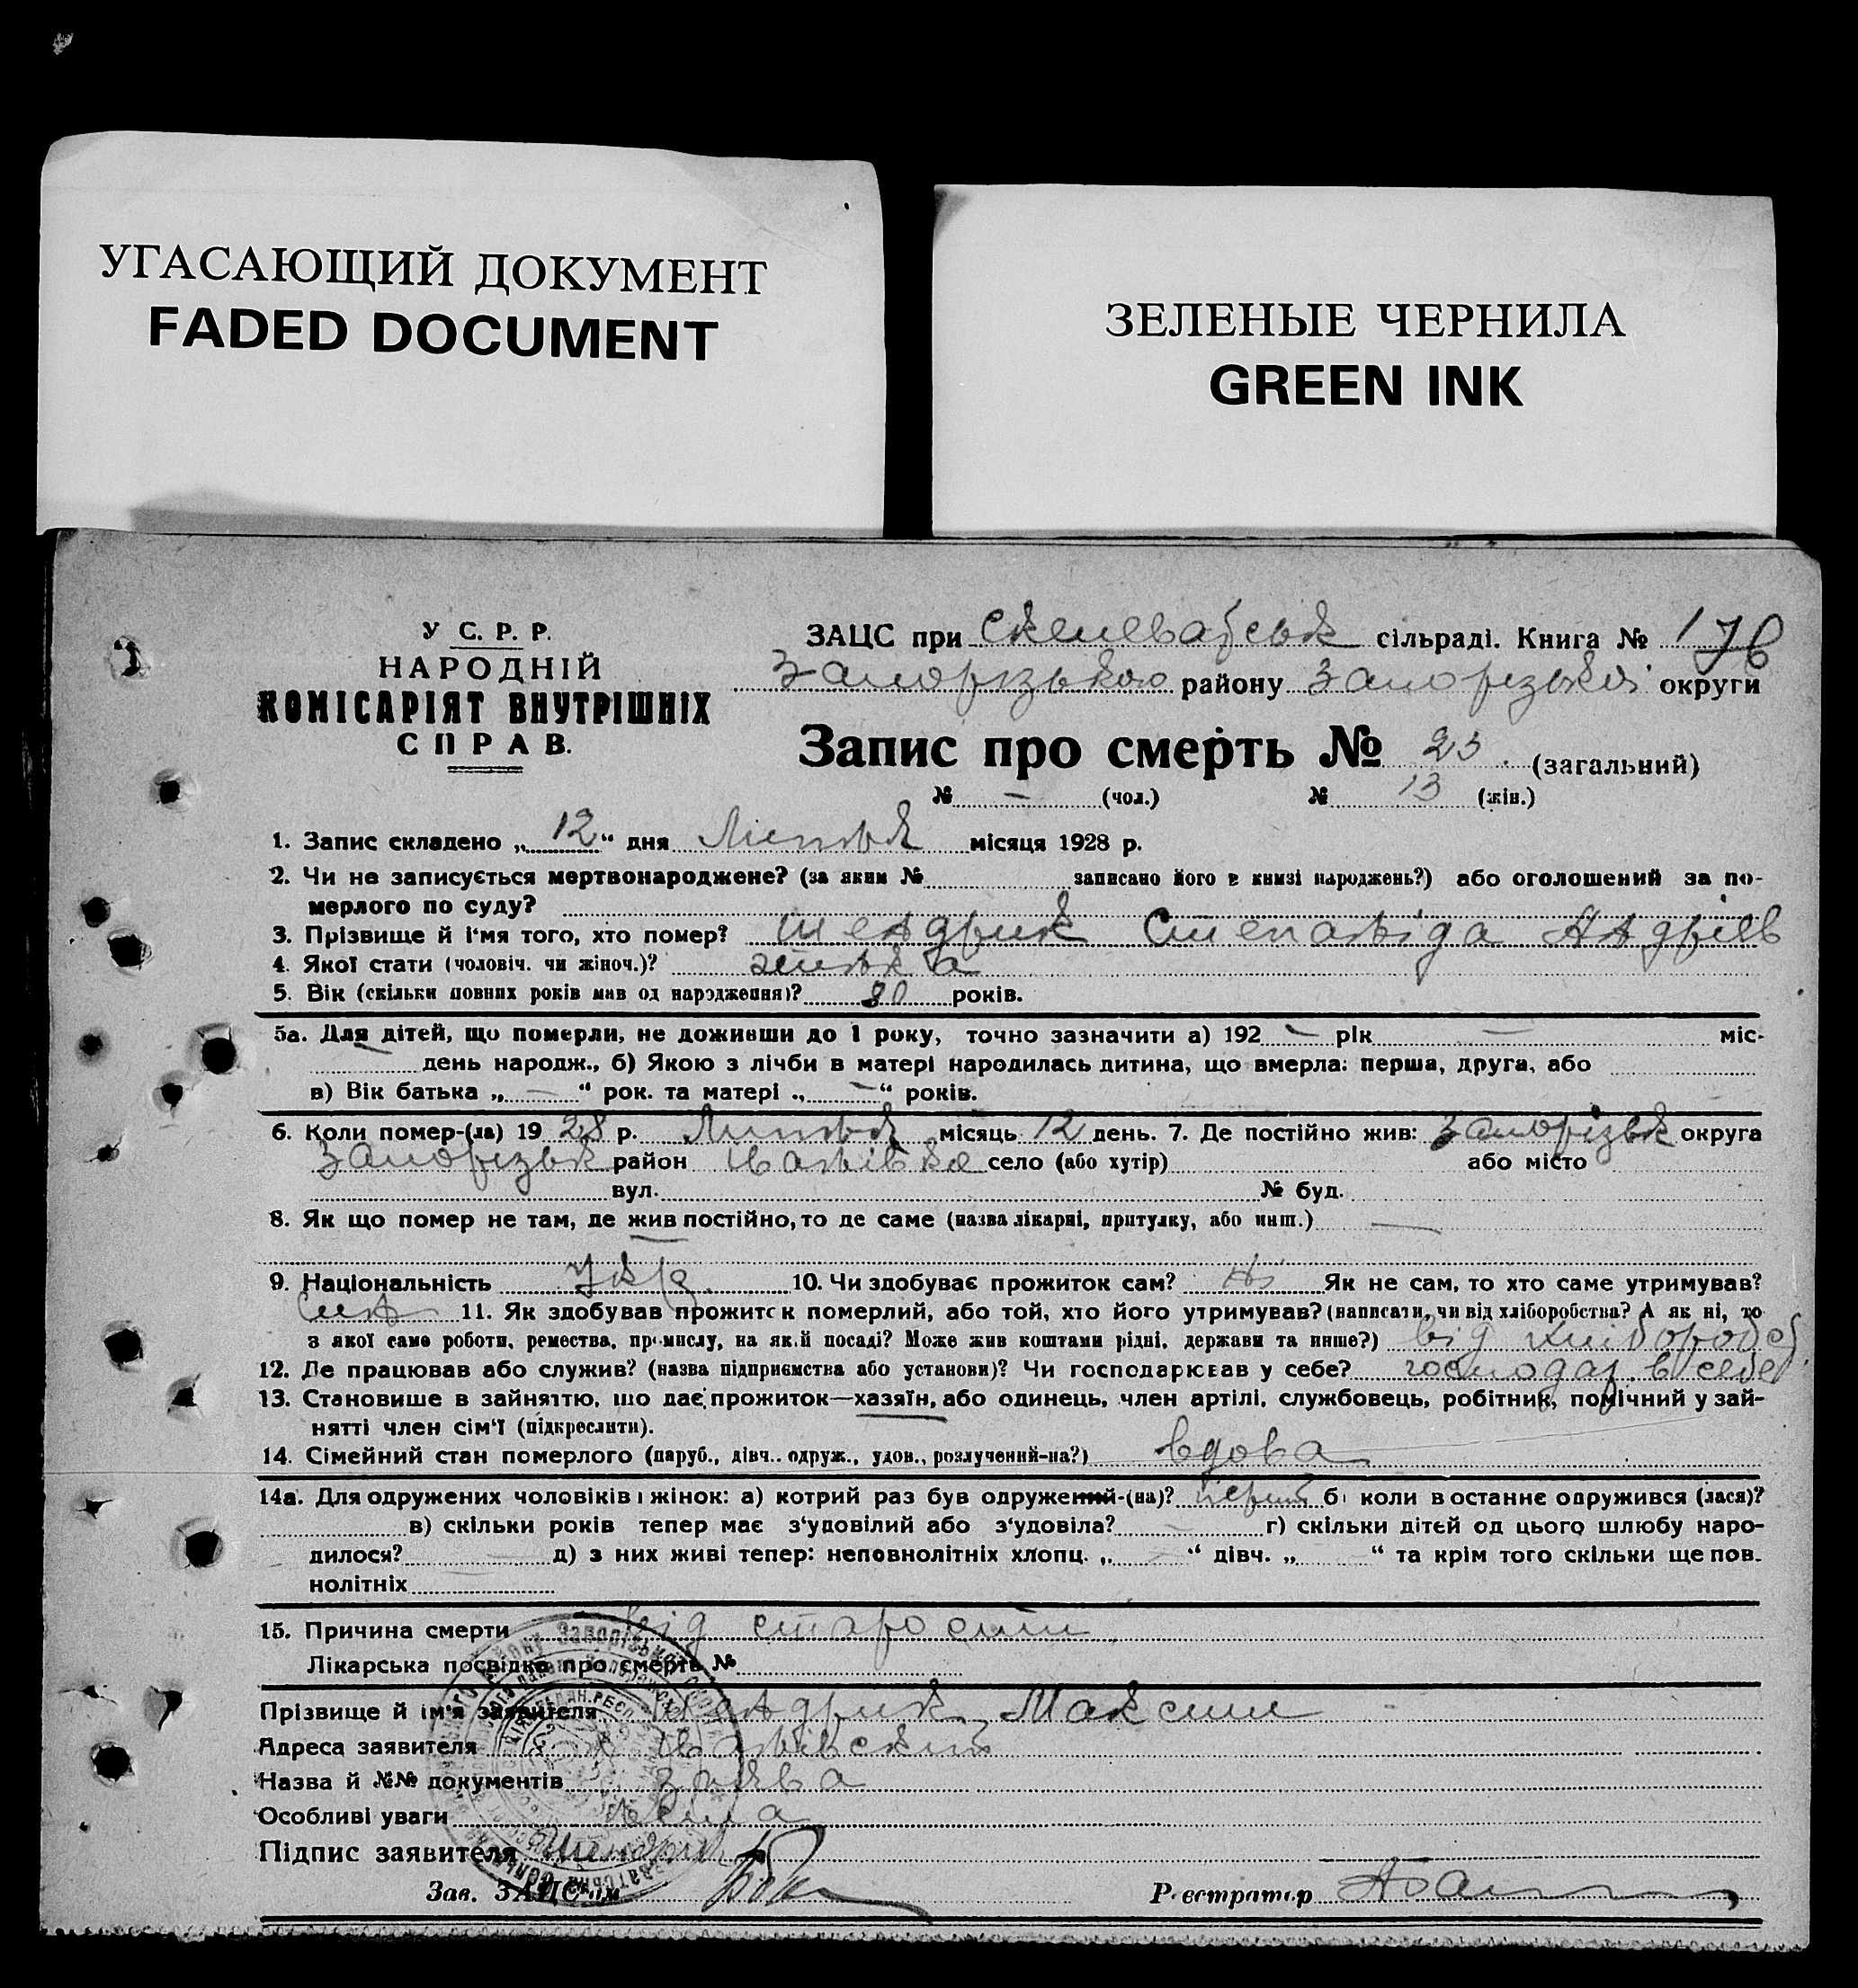 УГАСАЮЩИЙ ДОКУМЕНТ
FADED DOCUMENT
ЗЕЛЕНЫЕ ЧЕРНИЛА
GREEN INK
У С. Р. Р.
НАРОДНІЙ
КОМІСАРІЯТ ВНУТРІШНІХ
СПРАВ.
ЗАЦС при сільраді. Книга №
Запорізького району Запорізької округи
Запис про смерть № 23. (загальний)
№ — (чол.) № 13 (жін.)
1. Запис складено „12“ дня Липня місяця 1928 р.
2. Чи не записується мертвонароджене? (за яким № записано його в книзі народжень?) або оголошений за по-
мерлого по суду?
3. Прізвище й і'мя того, хто помер? Шендрик Степанида Андріев
4. Якої стати (чоловіч. чи жіноч.)? жінка
5. Вік (скільки повних років мав од народження)? 80 років.
5а. Для дітей, що померли, не доживши до 1 року, точно зазначити а) 192 — рік — міс-
— день народж., б) Якою з лічби в матері народилась дитина, що вмерла: перша, друга, або
в) Вік батька „—“ рок. та матері „—“ років.
6. Коли помер-(ла) 1928 р. Липня місяць 12 день. 7. Де постійно жив: Запорізьк округа
Запорізьк район село (або хутір) або місто
вул. № буд.
8. Як що помер не там, де жив постійно, то де саме (назва лікарні, притулку, або инш.) —
9. Національність Укр. 10. Чи здобуває прожиток сам? Ні Як не сам, то хто саме утримував?
Син 11. Як здобував прожиток померлий, або той, хто його утримував? (написати, чи від хліборобства? А як ні, то
з якої саме роботи, ремества, промислу, на якій посаді? Може жив коштами рідні, держави та инше?) від хліборобс
12. Де працював або служив? (назва підприємства або установи)? Чи господарював у себе? господар. в себе
13. Становище в зайняттю, що дає прожиток—хазяїн, або одинець, член артілі, службовець, робітник, помічний у зай-
нятті член сім'ї (підкреслити).
14. Сімейний стан померлого (паруб., дівч., одруж., удов., розлучений-на?) вдова
14а. Для одружених чоловіків і жінок: а) котрий раз був одружений-(на)? перший б) коли в останнє одружився (лася)?
в) скільки років тепер має з'удовілий або з'удовіла? — г) скільки дітей од цього шлюбу наро-
дилося? — д) з них живі тепер: неповнолітніх хлопц. „—“ дівч. „—“ та крім того скільки ще пов-
нолітніх
15. Причина смерти від старости
Лікарська посвідка про смерть №
Прізвище й ім'я заявителя Шендрик Максим
Адреса заявителя
Назва й №№ документів заява
Особливі уваги нема
Підпис заявителя Шендрик
Зав. ЗАЦС'ом
Реєстратор